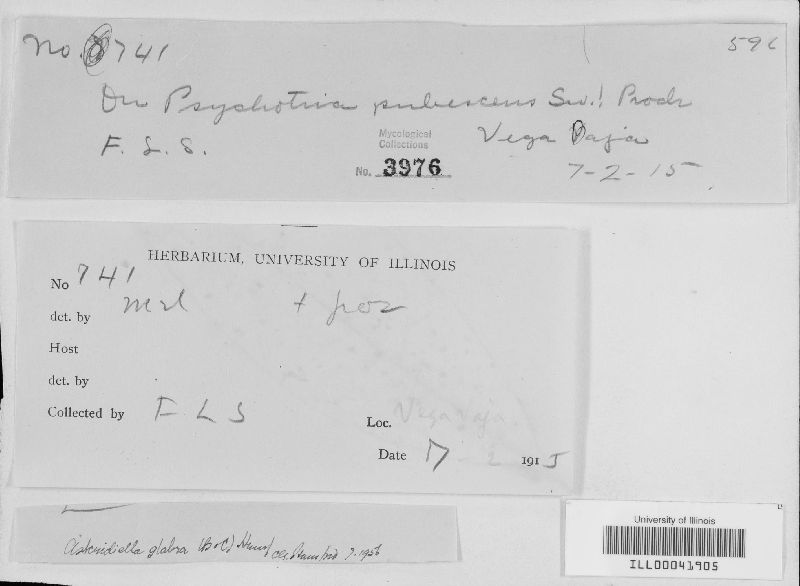 No. 8741
596
On Psychotria pubescens Sw.! Prodr
F. L. S.
Mycological
Collections
No. 3976
Vega Baja
7-2-15
HERBARIUM, UNIVERSITY OF ILLINOIS
No 741
det. by Mel + por
Host
det. by
Collected by F L S
Loc. Vega Baja
Date 7 - 2 1915
Asteridiella glabra (B+C) Hansf
det. Hansford 7-1956
University of Illinois
ILL00041905